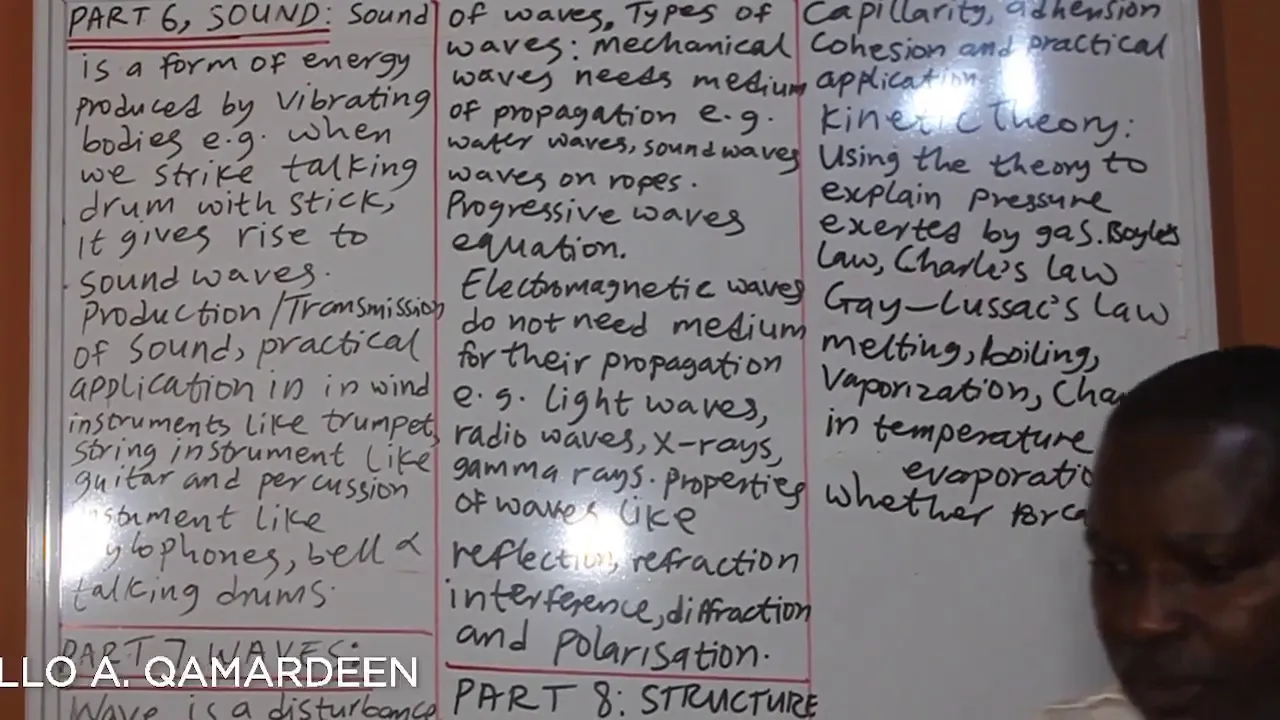 PART 6, SOUND: Sound
is a form of energy
produced by vibrating
bodies e.g. when
we strike talking
drum with stick,
it gives rise to
sound waves.
Production/Transmission
of sound, practical
application in in wind
instruments like trumpet,
string instrument like
guitar and percussion
instument like
ylophones, bell &
talking drums.
PART 7 WAVES:
Wave is a disturbance
of waves, Types of
waves: mechanical
waves needs medium
of propagation e.g.
water waves, sound waves
waves on ropes.
Progressive waves
equation.
Electromagnetic waves
do not need medium
for their propagation
e.g. light waves,
radio waves, X-rays,
gamma rays. properties
of waves like
reflection, refraction
interference, diffraction
and polarisation.
PART 8: STRUCTURE
Capillarity, adhension
Cohesion and practical
application
Kinetic Theory:
Using the theory to
explain pressure
exerted by gas. Boyle's
law, Charle's law
Gay-Lussac's Law
melting, boiling,
vaporization,
in temperature
evaporatio
whether
LLO A. QAMARDEEN